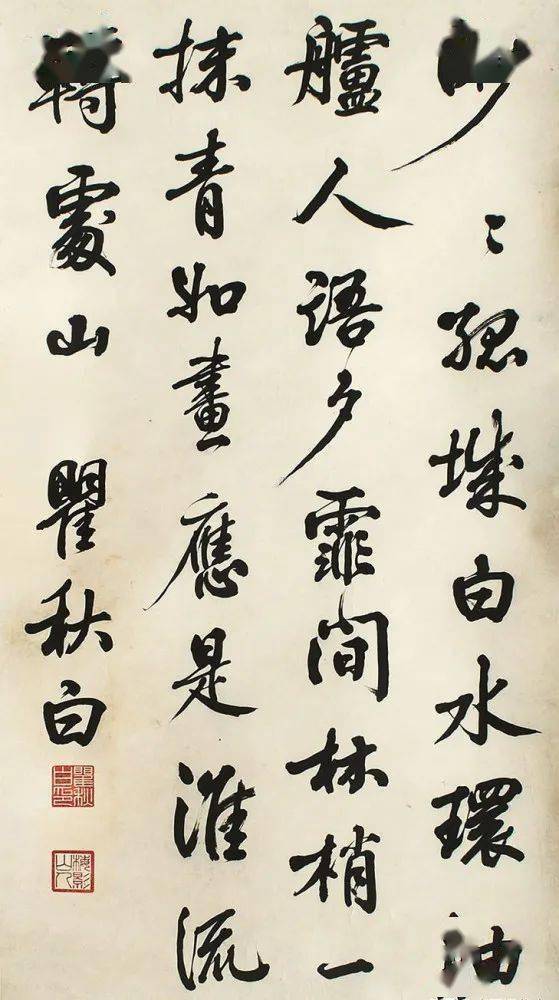 〻孤城白水環
艫人語夕霏間林梢一
抹青如畫應是淮流
處山 瞿秋白
瞿秋白印
梅影山人